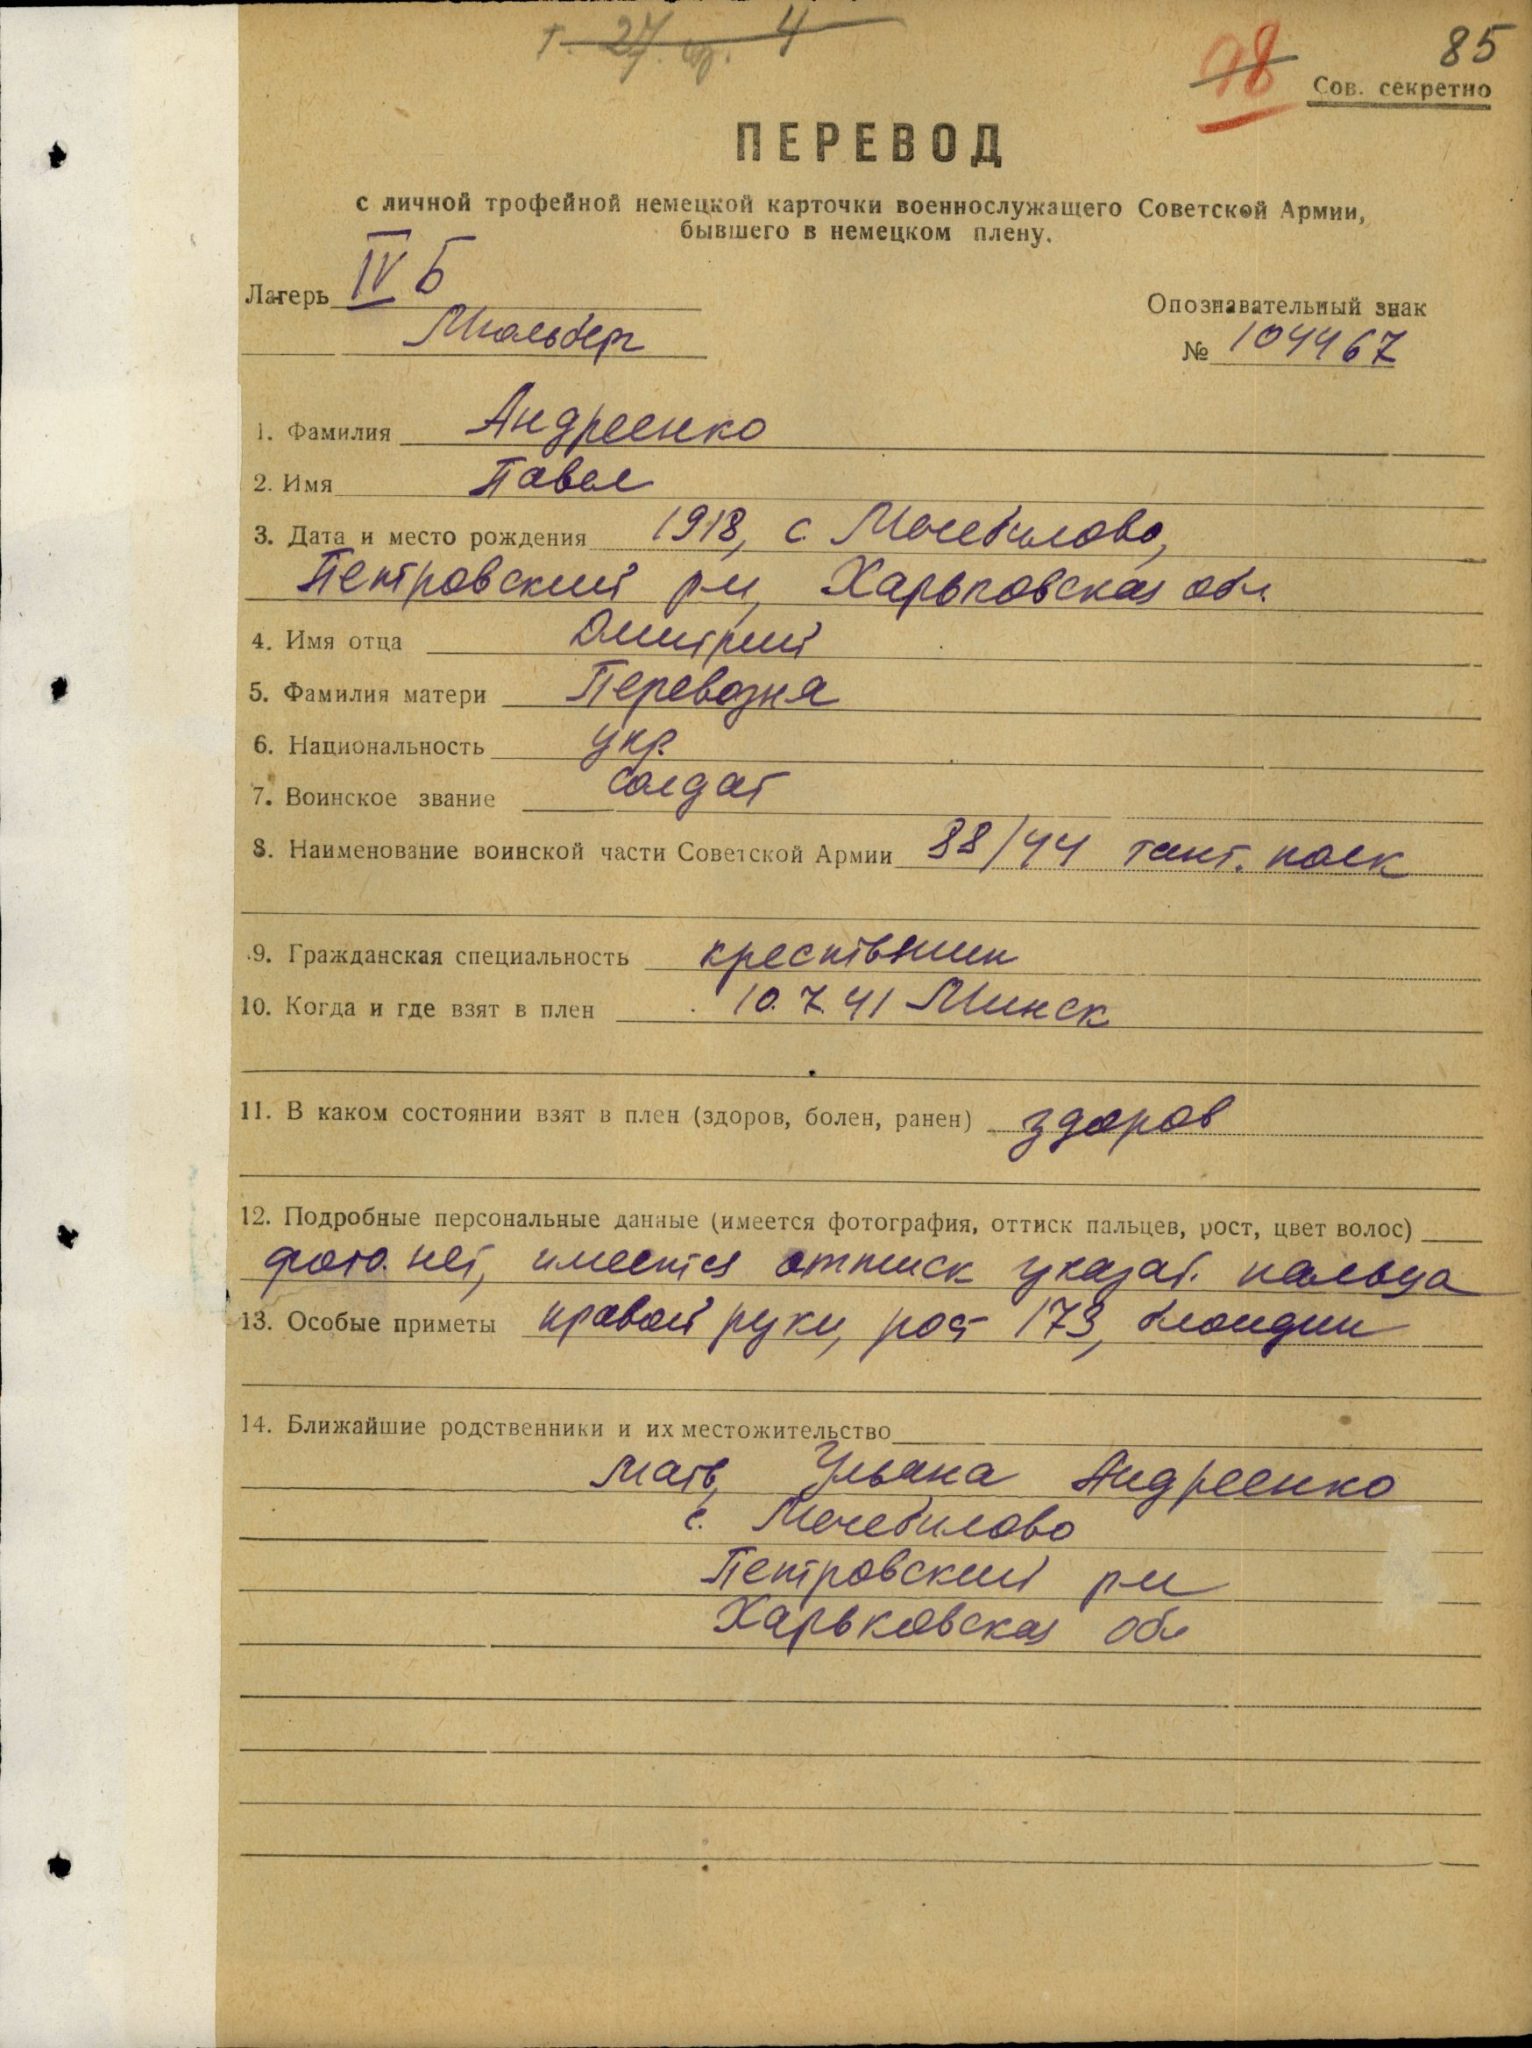 т. 27. стр. 4
98 85
Сов. секретно
ПЕРЕВОД
с личной трофейной немецкой карточки военнослужащего Советской Армии,
бывшего в немецком плену.
Лагерь IV Б
Мюльберг
Опознавательный знак
№ 104467
1. Фамилия Андреенко
2. Имя Павел
3. Дата и место рождения 1918, с Мечебилово,
Петровский р-н, Харьковская обл.
4. Имя отца Дмитрий
5. Фамилия матери Перевозня
6. Национальность укр.
7. Воинское звание солдат
8. Наименование воинской части Советской Армии 88/44 танк. полк
9. Гражданская специальность крестьянин
10. Когда и где взят в плен 10.7.41 Минск
11. В каком состоянии взят в плен (здоров, болен, ранен) здоров
12. Подробные персональные данные (имеется фотография, оттиск пальцев, рост, цвет волос)
фото нет, имеется оттиск указат. пальца
13. Особые приметы правой руки, рост 173, блондин
14. Ближайшие родственники и их местожительство
Мать, Ульяна Андреенко
с. Мечебилово
Петровский р-н
Харьковская обл